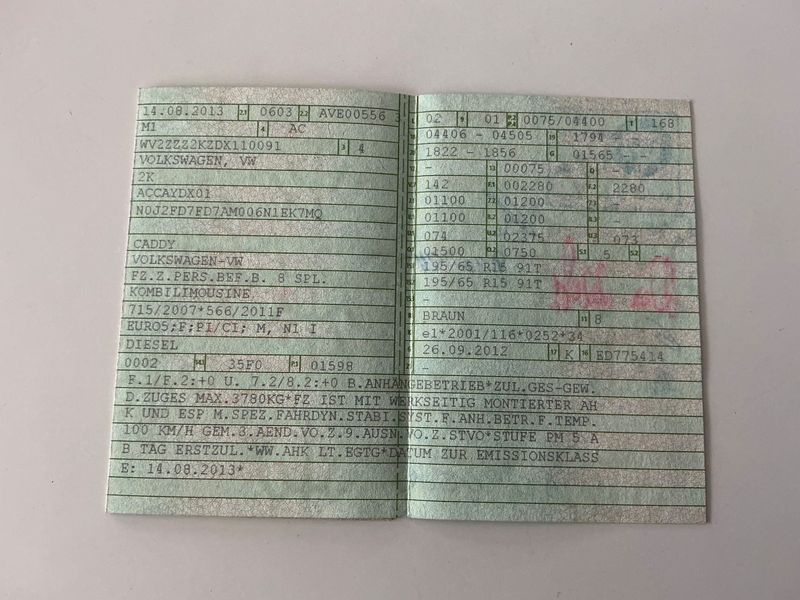 14.08.2013 2.1 0603 2.2 AVE00556 3
M1 4 AC
WV2ZZZ2KZDX110091 3 4
VOLKSWAGEN, VW
2K
ACCAYDX01
N0J2FD7FD7AM006N1EK7MQ
CADDY
VOLKSWAGEN-VW
FZ.Z.PERS.BEF.B. 8 SPL.
KOMBILIMOUSINE
715/2007*566/2011F
EURO5;F;PI/CI; M, N1 I
DIESEL
0002 35F0 01598
02 9 01 0075/04400 T 168
04406 - 04505 1794 - -
1822 - 1856 G 01565 - -
- 13 00075 Q -
142 F.1 002280 F.2 2280
01100 7.2 01200 -
01100 8.2 01200 -
074 U.2 02375 U.3 073
01500 O.2 0750 S.1 5 S.2
195/65 R15 91T
195/65 R15 91T
-
BRAUN 11 8
e1*2001/116*0252*34
26.09.2012 17 K 16 ED775414
-
F.1/F.2:+0 U. 7.2/8.2:+0 B.ANHÄNGEBETRIEB*ZUL.GES-GEW.
D.ZUGES MAX.3780KG*FZ IST MIT WERKSEITIG MONTIERTER AH
K UND ESP M.SPEZ.FAHRDYN.STABI.SYST.F.ANH.BETR.F.TEMP.
100 KM/H GEM.3.AEND.VO.Z.9.AUSN.VO.Z.STVO*STUFE PM 5 A
B TAG ERSTZUL.*WW.AHK LT.EGTG*DATUM ZUR EMISSIONSKLASS
E: 14.08.2013*